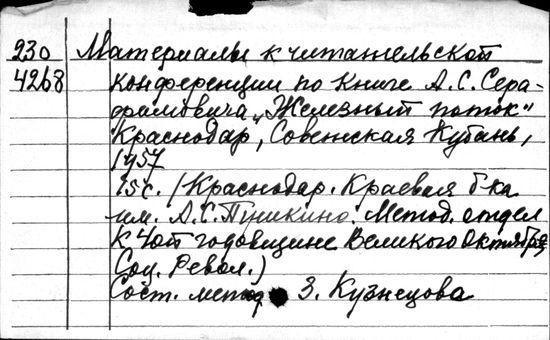 230 Материалы к читательской
4268 конференции по книге А.С. Сера-
фимовича "Железный поток"
Краснодар, Советская Кубань,
1957
15с. (Краснодар. Краевая б-ка
им. А.С. Пушкина. Метод. отдел
К 40й годовщине Великого Октября
Соц. Револ.)
Сост. метод З. Кузнецова